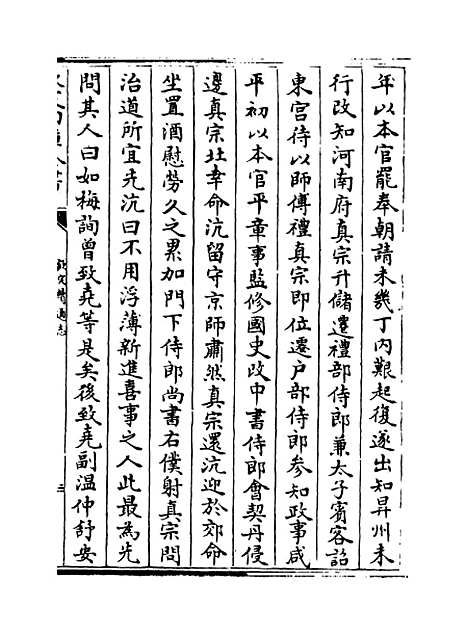 年以本官罷奉朝請未幾丁内艱起復遂出知昇州未
行改知河南府真宗升儲遷禮部侍郎兼太子賓客詔
東宫待以師傅禮真宗即位遷户部侍郎參知政事咸
平初以本官平章事監修國史改中書侍郎會契丹侵
邊真宗北幸命沆留守京師肅然真宗還沆迎於郊命
坐置酒慰勞久之累加門下侍郎尚書右僕射真宗問
治道所宜先沆曰不用浮薄新進喜事之人此最為先
問其人曰如梅詢曾致堯等是矣後致堯副温仲舒安
欽定續通志
三